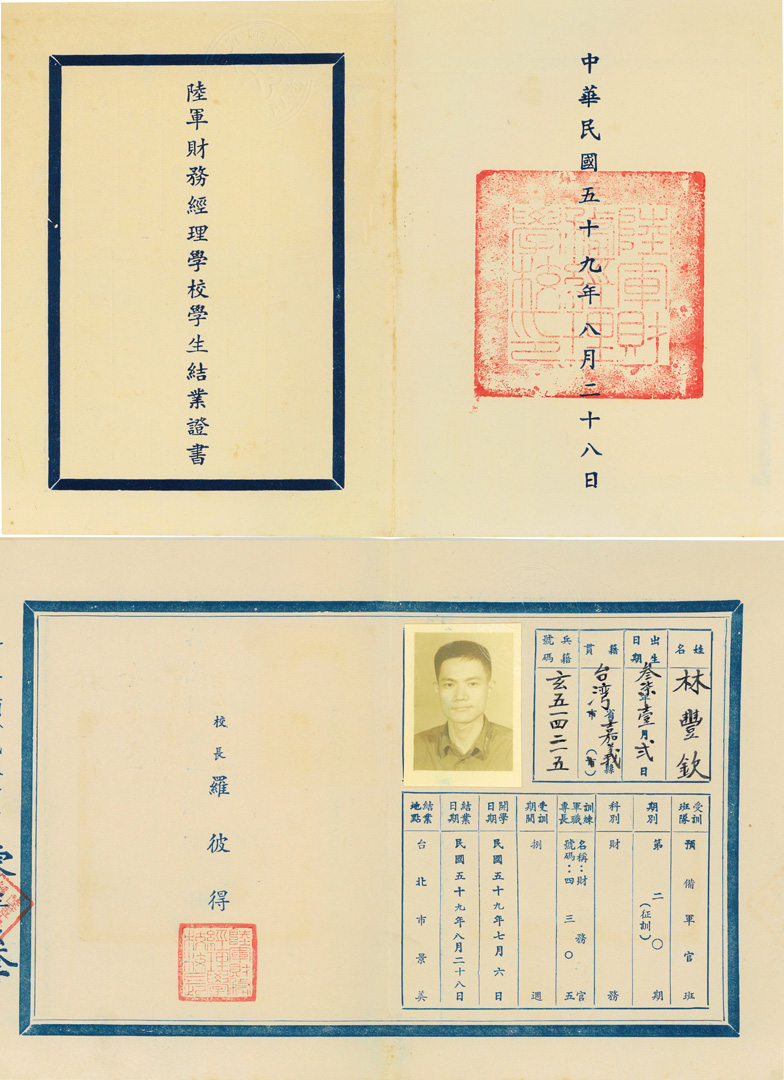 陸軍財務經理學校學生結業證書
中華民國五十九年八月二十八日
陸軍財務經理學校印
姓名
林豐欽
出生日期
叁柒年壹月貳日
籍貫
台湾省嘉義縣
市(省)
兵籍號碼
玄五一四二一五
受訓班隊
預備軍官班
期別
第二〇期
(征訓)
科別
財務
訓練軍職專長
名稱:財務官
號碼:四三〇五
受訓期間
捌週
開學日期
民國五十九年七月六日
結業日期
民國五十九年八月二十八日
結業地點
台北市景美
校長
羅彼得